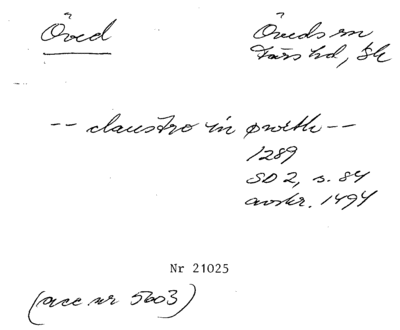 Öved
Öveds sn
Färs hd, Sk
-- claustro in øwith --
1289
SD 2, s. 84
avskr. 1494
Nr 21025
(acc nr 5603)